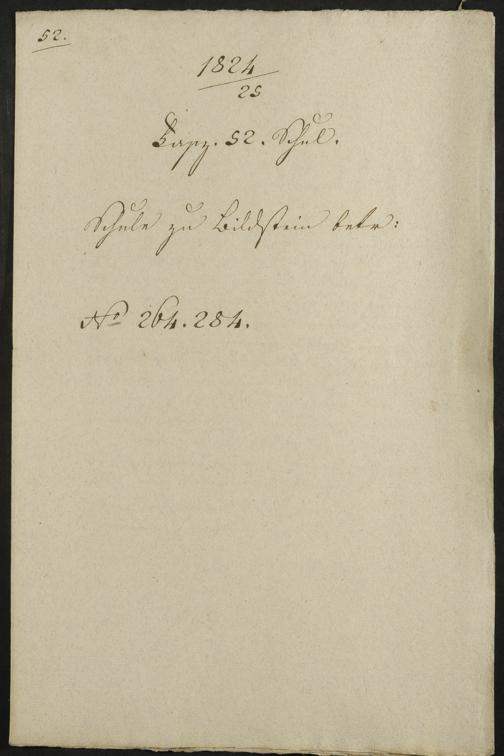 52.
1824
25
Fasz. 52. Schul.
Schule zu Bildstein betr:
No 264. 284.